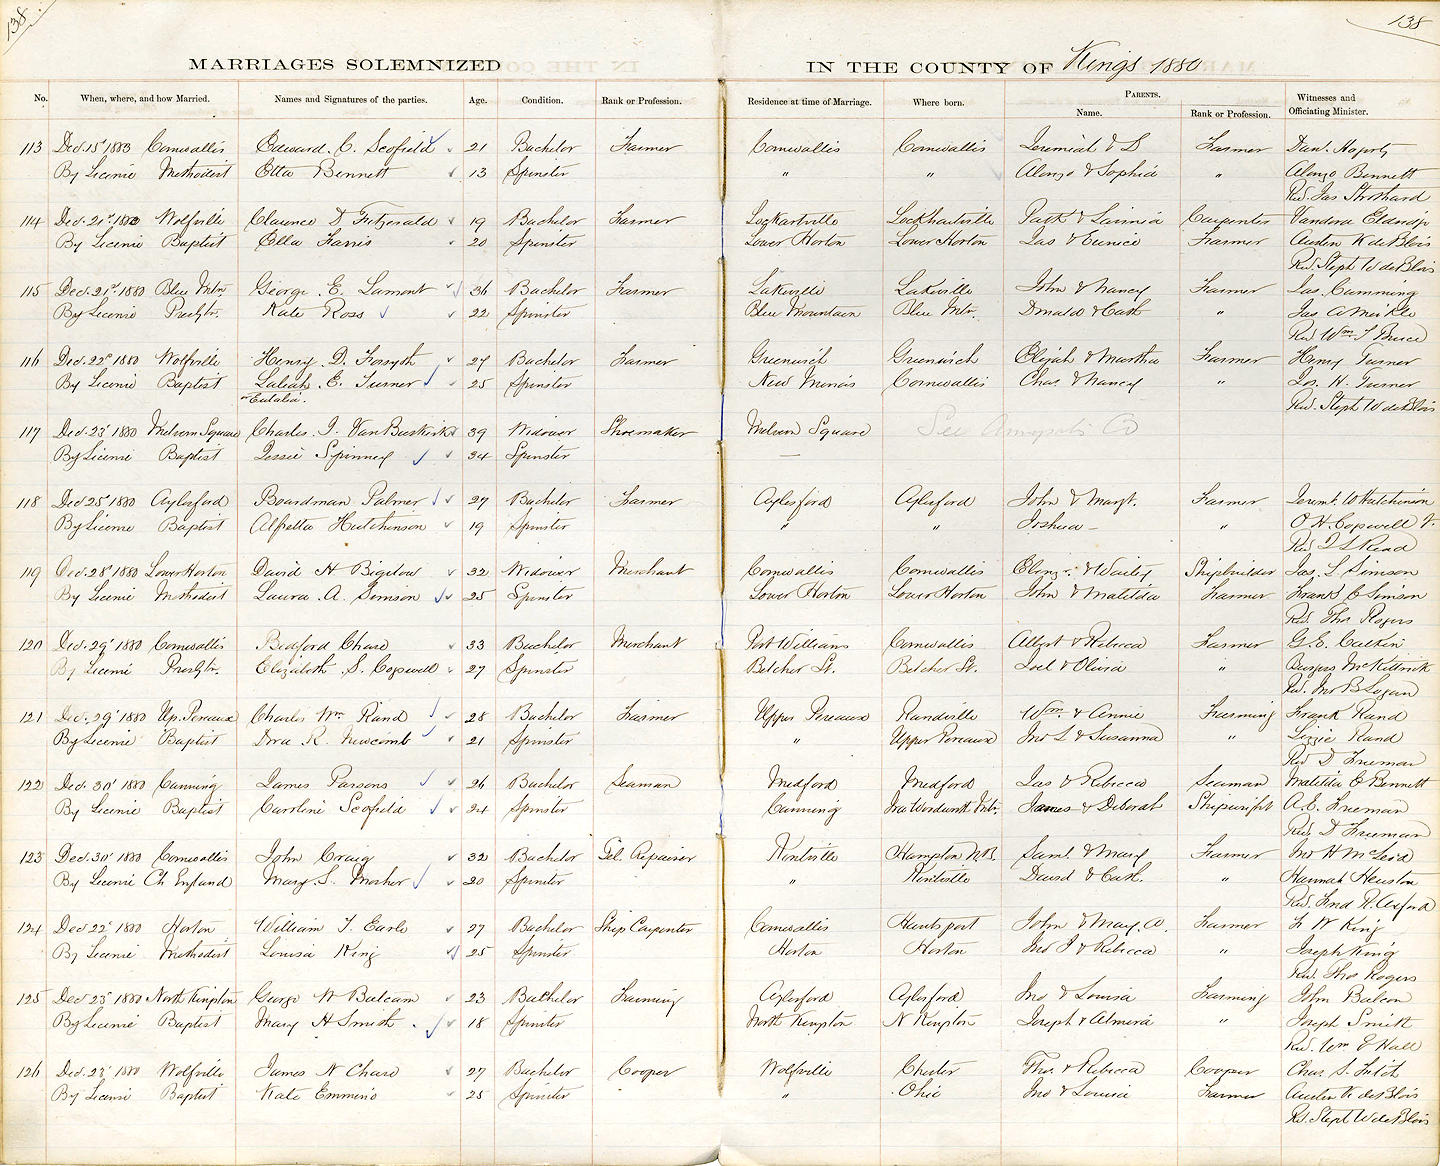 138
138
MARRIAGES SOLEMNIZED IN THE COUNTY OF Kings 1880
No. When, where, and how Married. Names and Signatures of the parties. Age. Condition. Rank or Profession. Residence at time of Marriage. Where born. PARENTS. Name. Rank or Profession. Witnesses and Officiating Minister.
113 Dec. 15' 1880 Cornwallis Edward. C. Scofield 21 Bachelor Farmer Cornwallis Cornwallis Jeremiah & S Farmer Danl. Hagerty
By Licence Methodist Etta Bennett 13 Spinster " " Alonzo & Sophia " Alonzo Bennett
Rev. Jas Strothard
114 Dec. 21st 1880 Wolfville Clarence D Fitzgerald 19 Bachelor Farmer Lockartville Lockhartville Patk & Lavinia Carpenter Vandora Eldridge
By Licence Baptist Ella Farris 20 Spinster Lower Horton Lower Horton Jas & Eunice Farmer Austen K de Blois
Rev. Steph W de Blois
115 Dec. 21st 1880 Blue Mtn. George. E. Lamont 36 Bachelor Farmer Lakeville Lakeville John & Nancy Farmer Jas. Cumming
By Licence Presbtr. Kate Ross 22 Spinster Blue Mountain Blue Mtn. Donald & Cath " Jas A Meikle
Rev Wm. T Bruce
116 Dec. 22d 1880 Wolfville Henry D. Forsyth 27 Bachelor Farmer Greenwich Greenwich Elijah & Martha Farmer Henry Turner
By Licence Baptist Laliah E. Turner 25 Spinster New Minas Cornwallis Chas. & Nancy " Jos. H. Turner
or Eulalia. Rev. Steph W de Blois
117 Dec. 23' 1880 Melvern Square Charles. I. VanBuskirk 39 Widower Shoemaker Melvern Square See Annapolis Co
By Licence Baptist Jessie Spinney 34 Spinster —
118 Dec 25' 1880 Aylesford Boardman Palmer 27 Bachelor Farmer Aylesford Aylesford John & Margt. Farmer Jeremh. W Hutchinson
By Licence Baptist Alfretta Hutchinson 19 Spinster " " Joshua — " O. H. Cogswell
Rev J L Read
119 Dec. 28' 1880 Lower Horton David H Bigelow 32 Widower Merchant Cornwallis Cornwallis Ebenzr. & Shipbuilder Jas. L Simson
By Licence Methodist Laura. A. Simson 25 Spinster Lower Horton Lower Horton John & Matilda Farmer Frank C Simson
Rev. Thos Rogers
120 Dec. 29' 1880 Cornwallis Bedford Chase 33 Bachelor Merchant Port Williams Cornwallis Albert & Rebecca Farmer G. E.
By Licence Presbtr. Elizabeth S. Cogswell 27 Spinster Belcher St. Belcher St. Joel & Olivia " Burgess McKittrick
Rev. Jno B Logan
121 Dec. 29' 1880 Up. Pereaux Charles Wm. Rand 28 Bachelor Farmer Upper Pereaux Randville Wm. & Annie Farming Frank Rand
By Licence Baptist Dora R. Newcomb 21 Spinster " Upper Pereaux Jno L & Susanna " Lizzie Rand
Rev D Freeman
122 Dec. 30' 1880 Canning James Parsons 26 Bachelor Seaman Medford Medford Jas & Rebecca Seaman Matilda E Bennett
By Licence Baptist Caroline Scofield 24 Spinster Canning Nr. Wordworth Mtn. James & Deborah Shipwright A. E. Freeman
Rev. D Freeman
123 Dec. 30' 1880 Cornwallis John Craig 32 Bachelor Tel. Repairer Kentville Hampton N.B. Saml. & Mary Farmer Jno H McLeod
By Licence Ch England Mary S. Mosher 20 Spinster " Kentville David & Cath. " Hannah Heuston
Rev. Fred R. Axford
124 Dec. 22d 1880 Horton William T. Earle 27 Bachelor Ship Carpenter Cornwallis Hantsport John & Mary. A. Farmer F W King
By Licence Methodist Louisa King 25 Spinster Horton Horton Jno J & Rebecca " Joseph King
Rev. Thos Rogers
125 Dec 23' 1880 North Kingston George N Balcam 23 Bachelor Farming Aylesford Aylesford Jno & Louisa Farming John Balcom
By Licence Baptist Mary H Smith 18 Spinster North Kingston N Kingston Joseph & Almira " Joseph Smith
Rev. Wm E Hall
126 Dec. 23' 1880 Wolfville James N Chase 27 Bachelor Cooper Wolfville Chester Thos. & Rebecca Cooper Chas. S. Fitch
By Licence Baptist Kate Emmino 25 Spinster " Ohio Jno & Louisa Farmer Austen K de Blois
Rev. Steph W de Blois